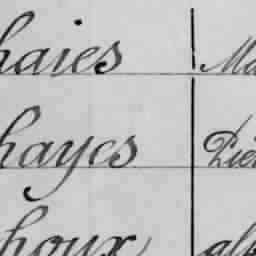 haies Ma
hayes Pier
houx alp